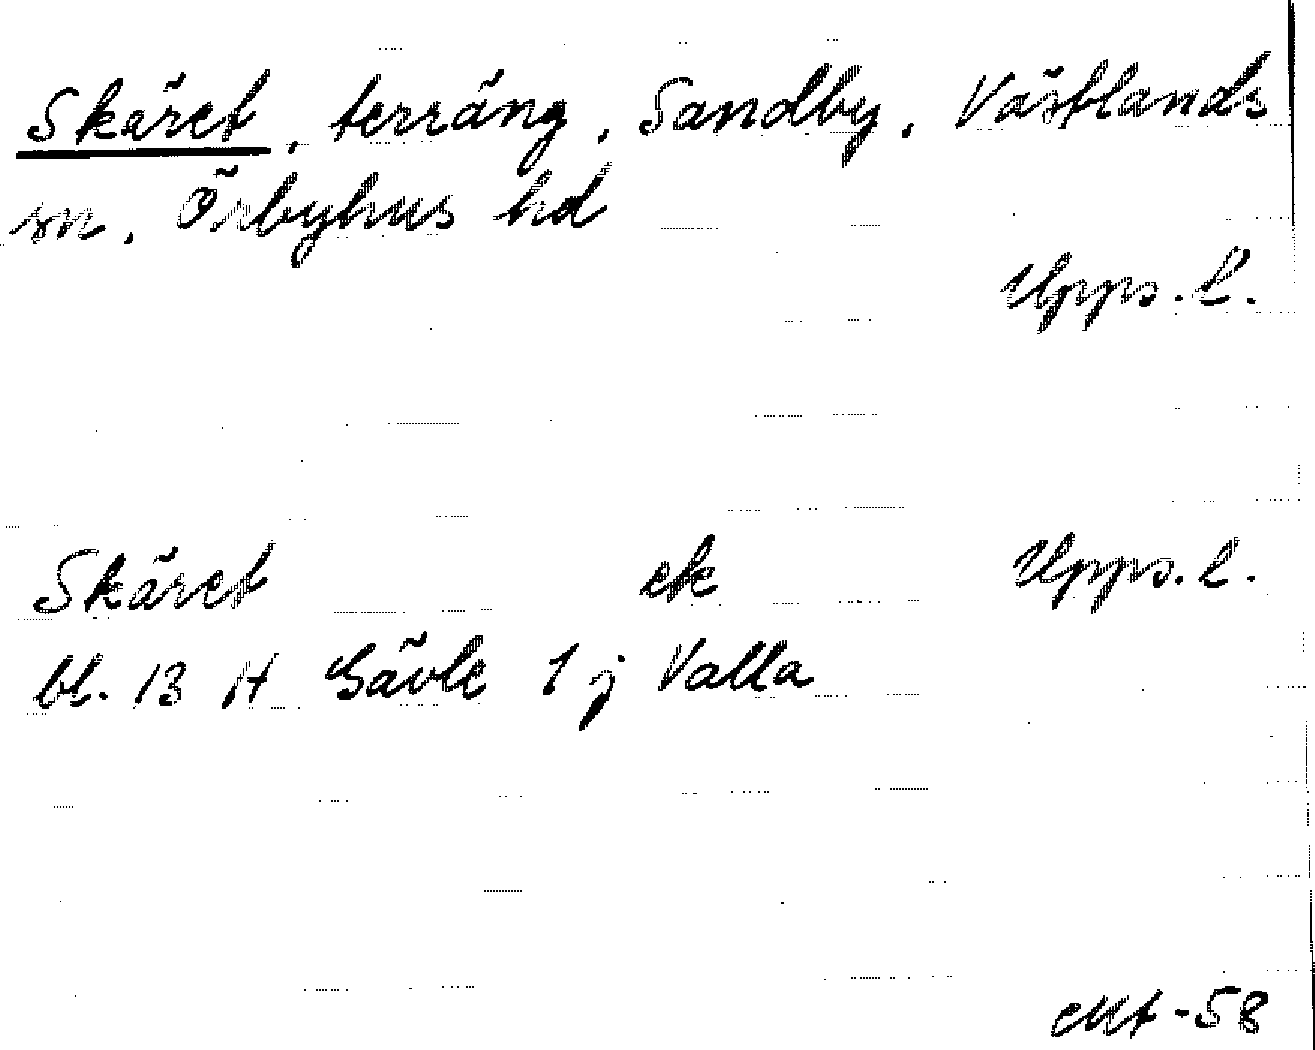 Skäret, terräng, Sandby, Västlands
sn, Örbyhus hd
Upps. l.
Skäret ek Upps. l.
bl. 13 H Gävle 1 j Valla
-58